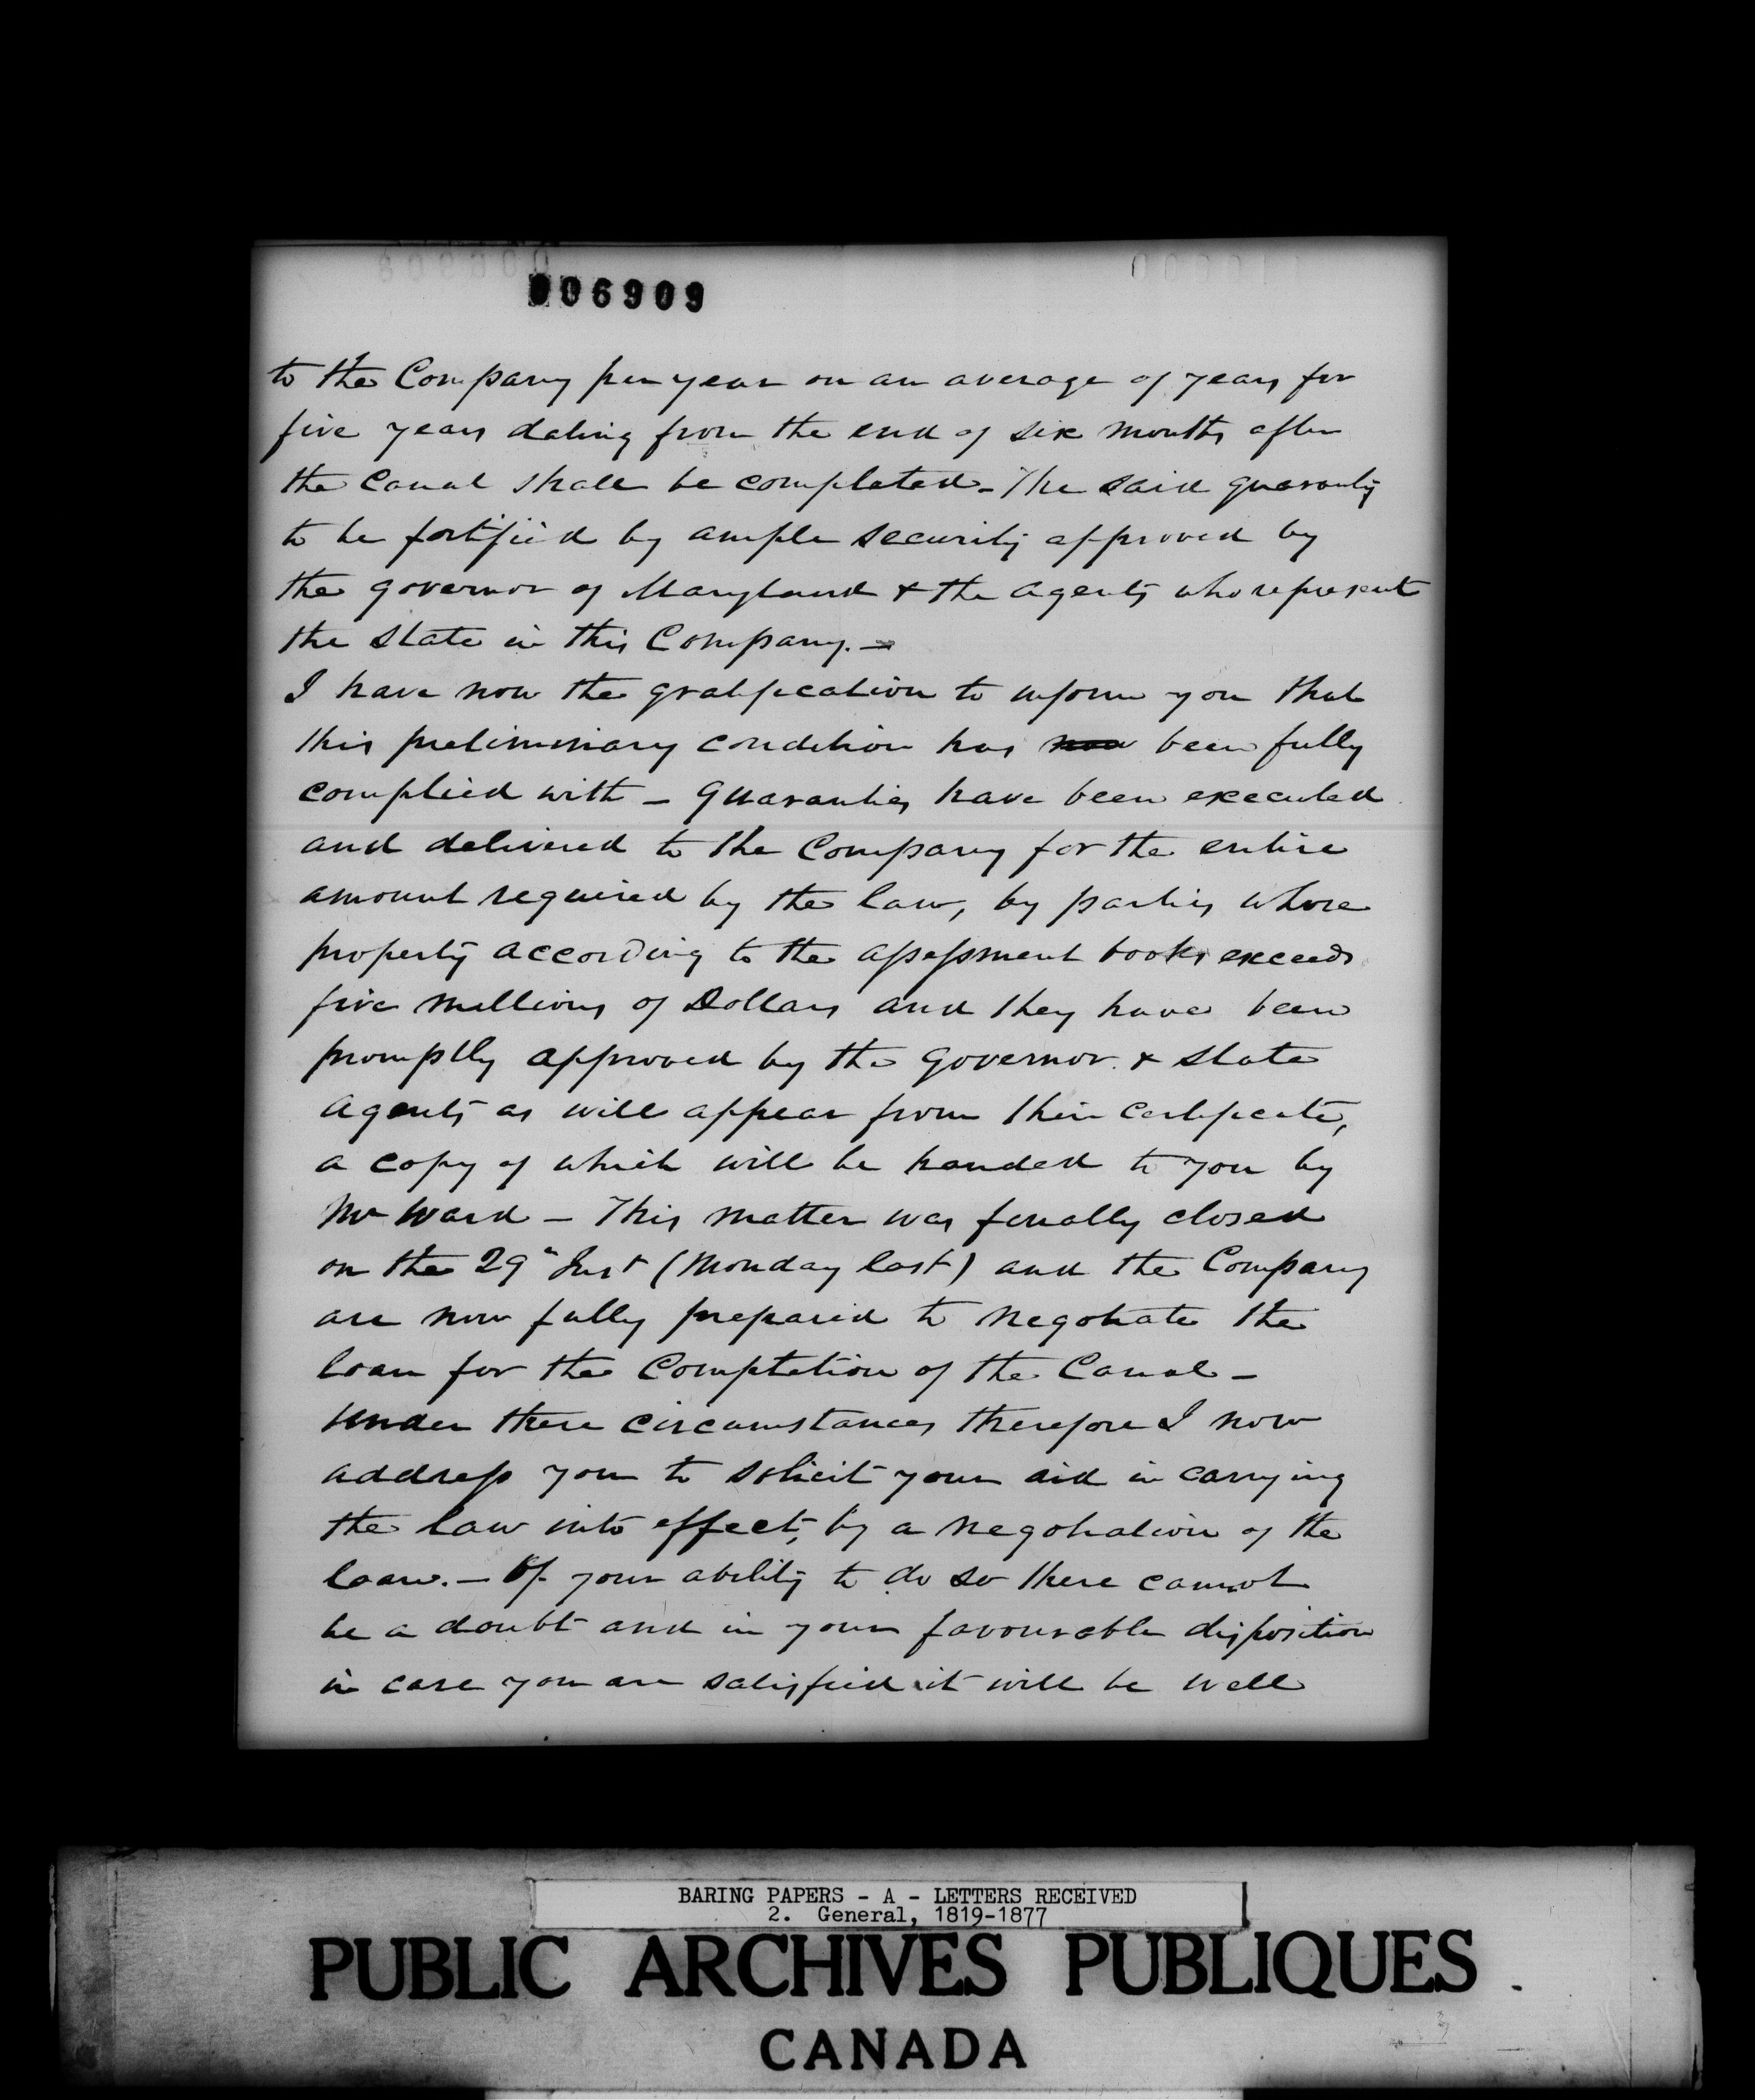 006909
to the Company per year on an average of years for
five years dating from the end of six months after
the Canal shall be completed - The said guaranty
to be fortified by ample security approved by
the Governor of Maryland & the agents who represent
the State in this Company. -
I have now the gratification to inform you that
this preliminary condition has now been fully
complied with - Guaranties have been executed
and delivered to the Company for the entire
amount required by the law, by parties whose
property according to the assessment books exceeds
five millions of Dollars and they have been
promptly approved by the Governor & State
Agents as will appear from their certificate,
a copy of which will be handed to you by
Mr Ward - This matter was finally closed
on the 29th Inst (Monday last) and the Company
are now fully prepared to negotiate the
loan for the Completion of the Canal -
Under these circumstances therefore I now
address you to solicit your aid in carrying
the law into effect, by a negotiation of the
loan. - Of your ability to do so there cannot
be a doubt and in your favourable disposition
in case you are satisfied it will be well
BARING PAPERS - A - LETTERS RECEIVED
2. General, 1819-1877
PUBLIC ARCHIVES PUBLIQUES
CANADA